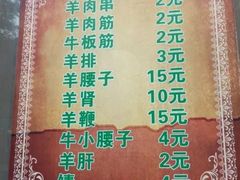 羊肉串 2元
羊肉筋 2元
牛板筋 2元
羊排 3元
羊腰子 15元
羊肾 10元
羊鞭 15元
牛小腰子 4元
羊肝 2元